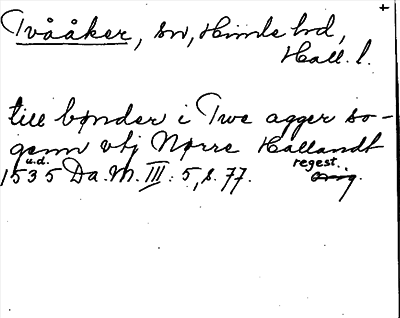 +
Tvååker, sn, Himle hd,
Hall. l.
till bønder i Twe agger so-
genn vtj Nørre Hallandt
u.d. regest.
1535 Da. M. III: 5, s. 77. orig.